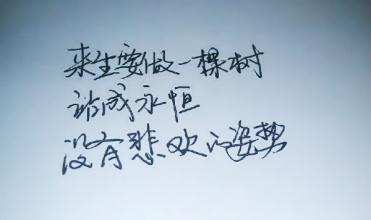 来生要做一棵树
站成永恒
没有悲欢的姿势